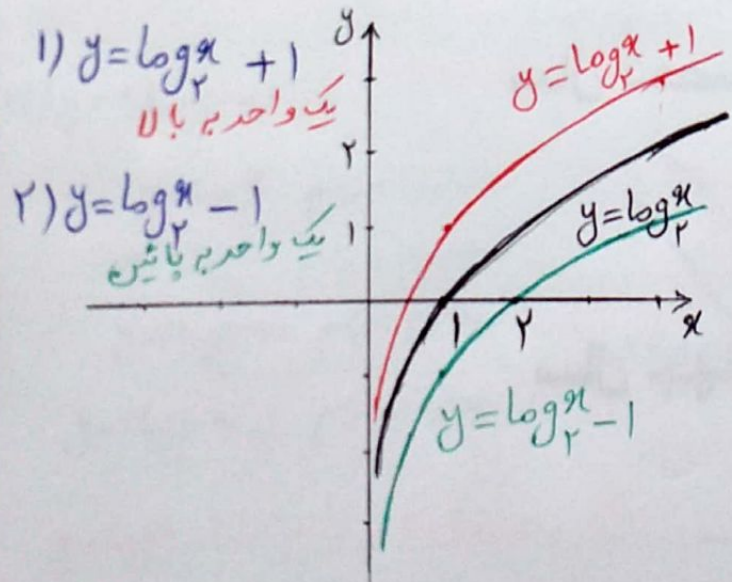 ۱) y = log₂ˣ + 1
یک واحد به بالا
۲) y = log₂ˣ - 1
یک واحد به پائین
y
y = log₂ˣ + 1
۲
۱
y = log₂ˣ
۱
۲
x
y = log₂ˣ - 1